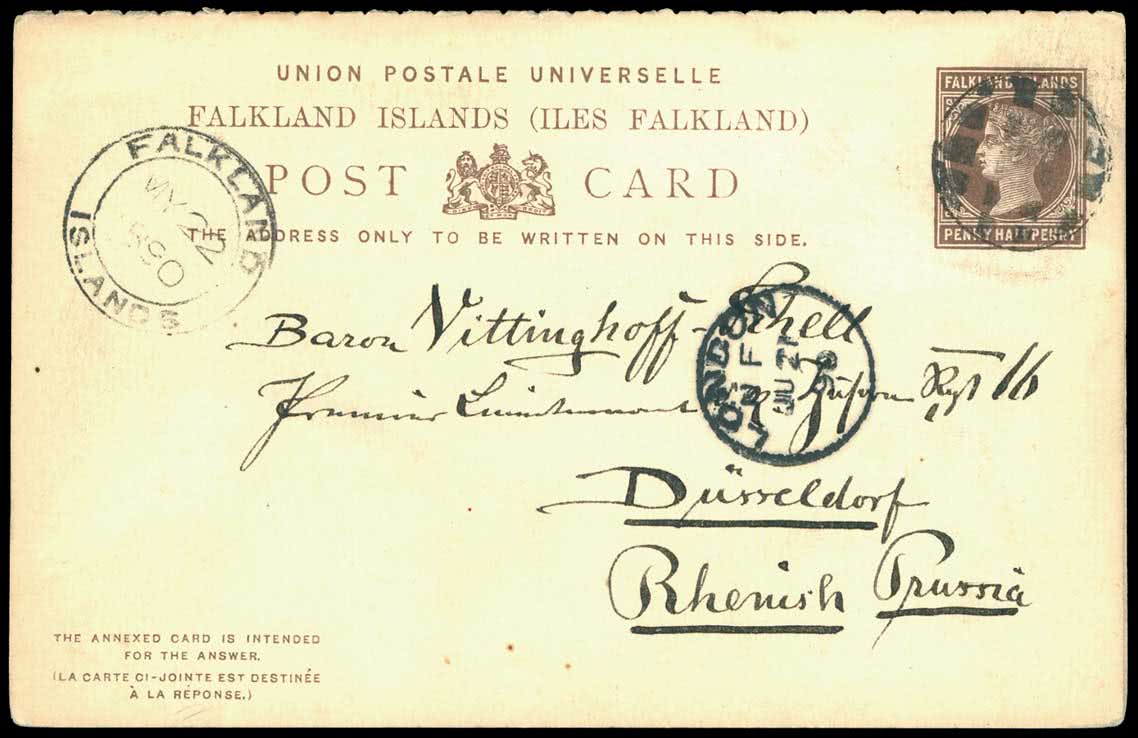 UNION POSTALE UNIVERSELLE
FALKLAND ISLANDS (ILES FALKLAND)
POST CARD
THE ADDRESS ONLY TO BE WRITTEN ON THIS SIDE.
FALKLAND ISLANDS
PENNY HALFPENNY
FALKLAND ISLANDS
MY 22
90
LONDON
N F
JU 2
90
Baron Vittinghoff-Schell
Premier Lieutenant Husaren Rgt 11
Düsseldorf
Rhenish Prussia
THE ANNEXED CARD IS INTENDED
FOR THE ANSWER.
(LA CARTE CI-JOINTE EST DESTINÉE
À LA RÉPONSE.)